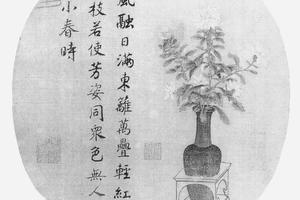 風融日滿東籬萬疊輕紅
枝若使芳姿同衆色無人
小春時